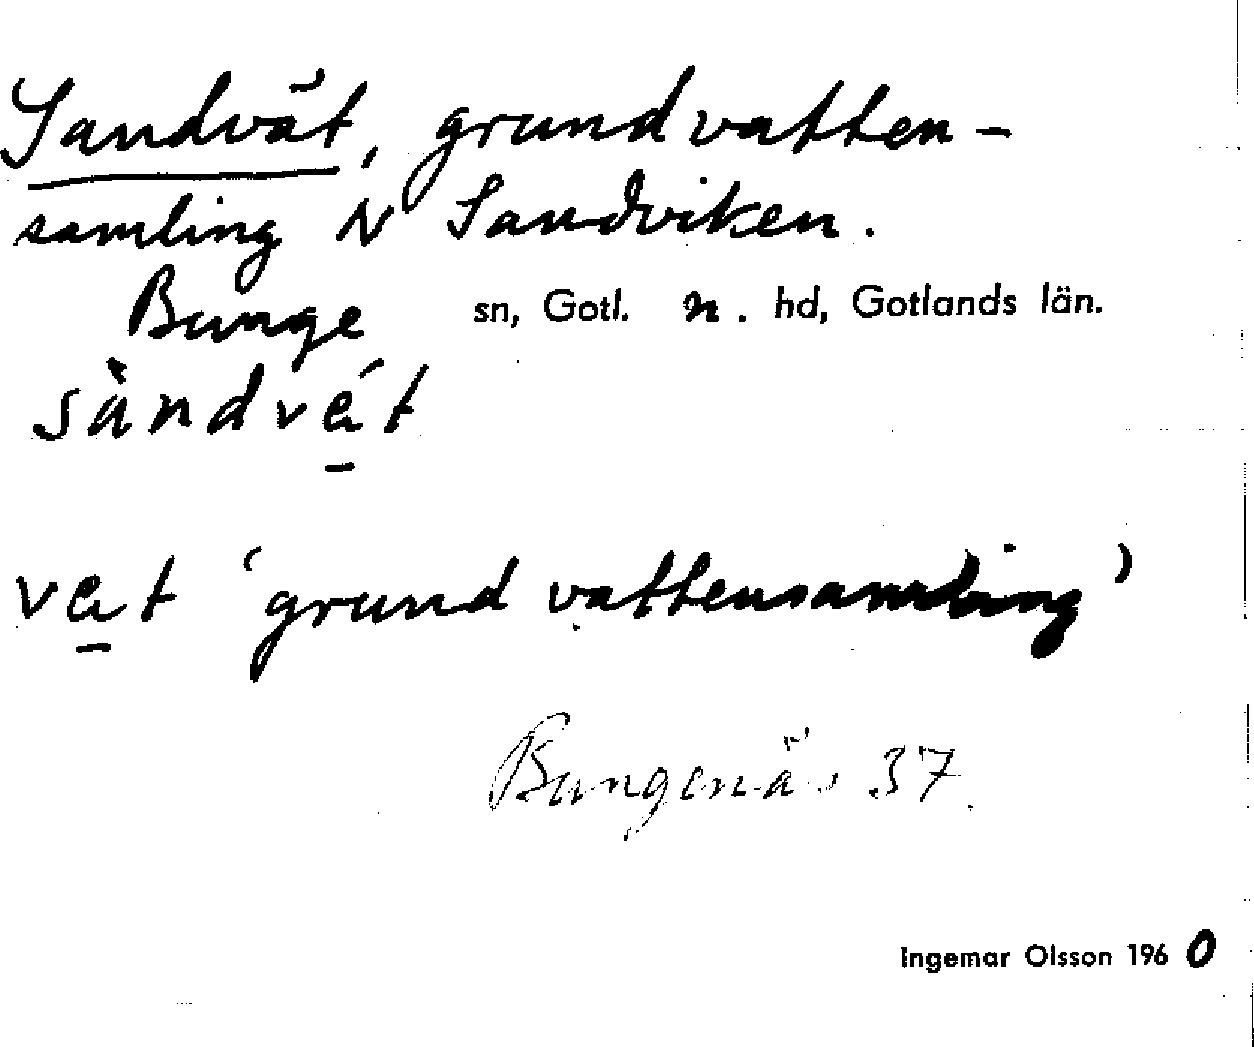 Sandvät, grundvatten-
samling N Sandviken.
Bunge sn, Gotl. n. hd, Gotlands län.
sàndvá̱t
va̱t 'grund vattensamling'
Bungenäs 37.
Ingemar Olsson 1960